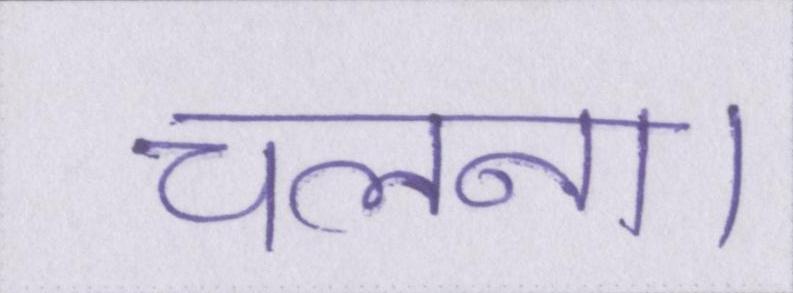 चलना।